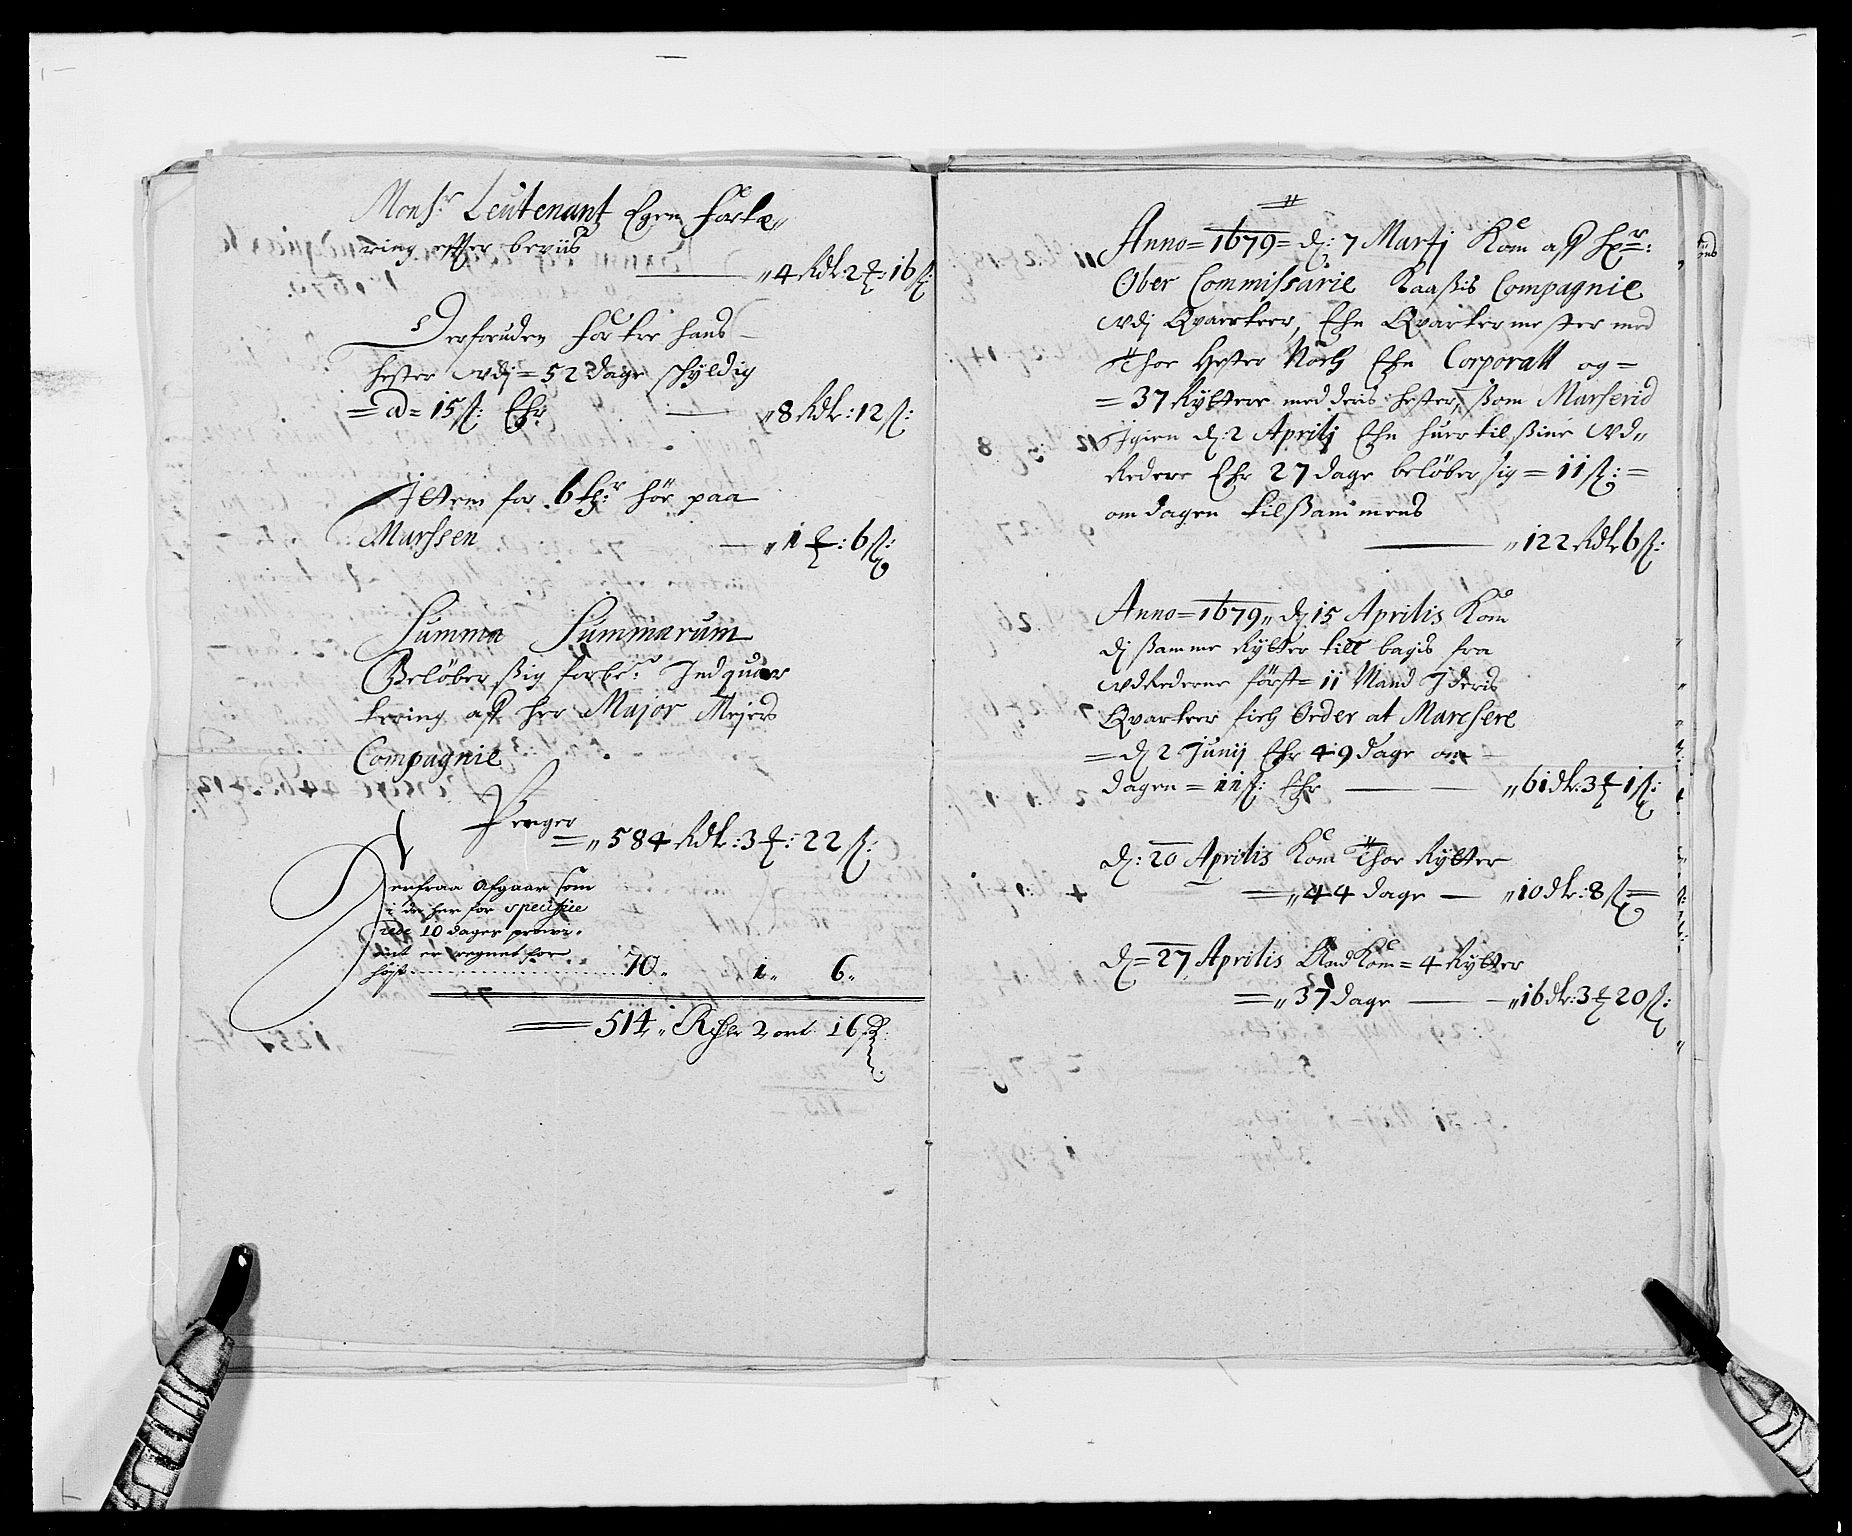 Monsr Leutenant Egen fortæ„
ring effter beviis
„4 Rdlr 2 ℔: 16 ß:
Derforuden for tre hans
hester vdj = 52 dage schyldig
= a = 15 ß: Ehr — „8 Rdlr: 12 ß:
Jttem for 6 hör paa
Marssen — „1 ℔: 6 ß:
Summa Summarum
Belöber ßig forbe: Indquar
tering aff her Major Mejers
Compagnie
Penger
= „584 Rdlr: 3 ℔: 22 ß:
Herfraa Afgaar som
i de her for specifice
rede 10 dages provi„
ant er regnet for
höyt ..... 70„ 1„ 6„
514„ Rixdlr 2 ort 16 ß
Anno = 1679 = d: 7 Martj Kom aff Hr:
Ober Commissarie Kaaßis Compagnie
vdj Qvarteer, Ehn Qvartermester med
Thoe Hester Noch Ehn Corporall og =
= 37 Rÿttere med deris hester, ßom Marserid
Igien d: 2 Aprilj Ehn huer til ßine vd„
Redere Ehr 27 dage belöber sig = 11 ß: =
om dagen tilßammens
„122 Rdlr 6 ß:
Anno = 1679„ d 15 Aprilis Kom
dj ßamme Rÿtter till bagis fra
vdRederne först = 11 Mand I deris
Qvarteer fich Order at Marchere
= d 2 Junij Ehr 49 dage om
dagen = 11 ß: Ehr — „61 dlr: 3 ℔ 1 ß:
d: 20 Aprilis Kom Thoe Rÿtter
= „44 dage — „10 dlr: 8 ß =
d = 27 Aprilis And Kom = 4 Rÿtter
= „37 dage — „16 dlr: 3 ℔ 20 ß: